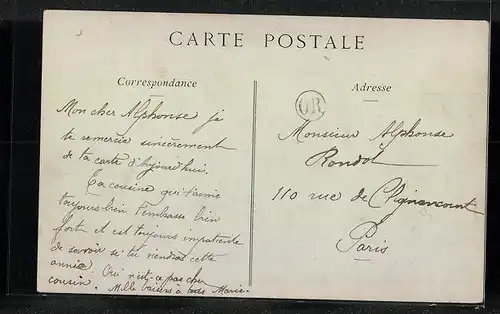 CARTE POSTALE
Correspondance
Mon cher Alphonse je
te remercie sincèrement
de ta carte d'aujourd'hui.
Ta cousine qui t'aime
toujours bien t'embrasse bien
fort et est toujours impatiente
de savoir si tu viendras cette
année. Oui n'est-ce pas cher
cousin. Mille baisers à tous Marie.
Adresse
OR
Monsieur Alphonse
Rondot
110 rue de Clignancourt
Paris